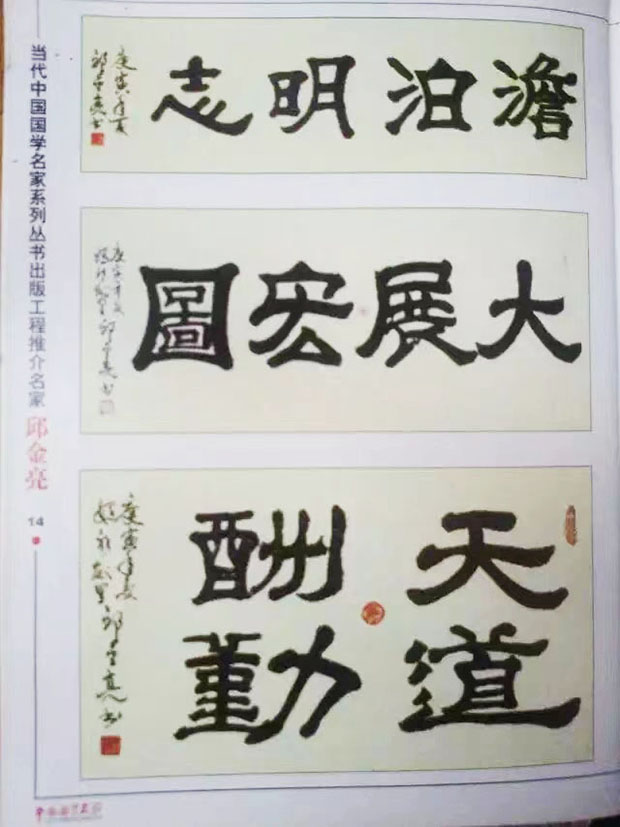 澹泊明志
庚寅年夏
邱金亮书
大展宏圖
庚寅年夏
邱金亮书
天道
酬勤
庚寅年夏
邱金亮书
当代中国国学名家系列丛书出版工程推介名家 邱金亮
14